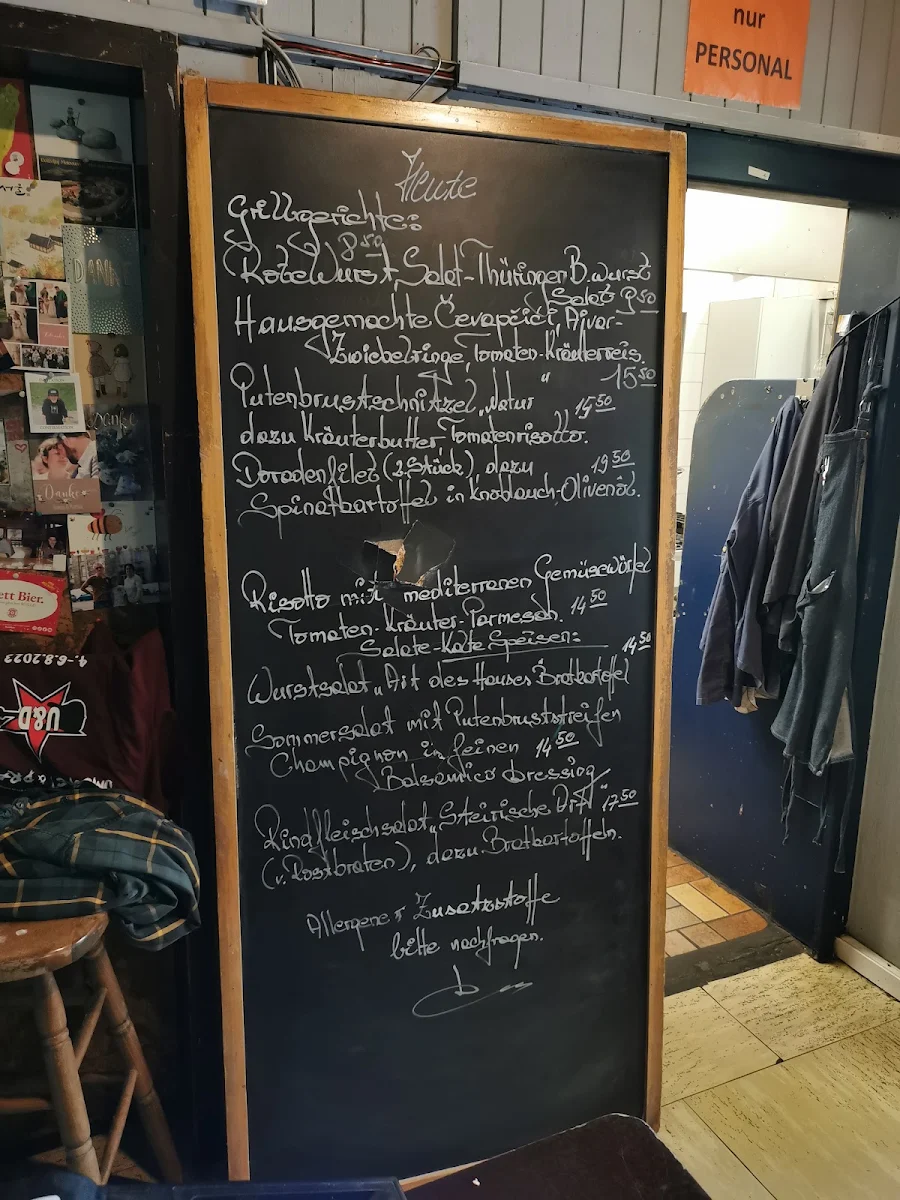 nur
PERSONAL
Heute
Grillgerichte:
8 50
Rote Wurst, Salat - Thüringer B.wurst
Salat 9 50
Hausgemachte Čevapčići, Ajvar-
Zwiebelringe, Tomaten-Kräuterreis.
15 50
Putenbrustschnitzel „Natur“ 15 50
dazu Kräuterbutter Tomatenrisotto.
Doradenfilet (2 Stück), dazu 19 50
Spinatkartoffel in Knoblauch-Olivenöl.
Risotto mit mediterranen Gemüsewürfel
Tomaten-Kräuter-Parmesan. 14 50
Salate-Kalte Speisen:
14 50
Wurstsalat „Art des Hauses Bratkartoffel
Sommersalat mit Putenbruststreifen
Champignon in feinen 14 50
Balsamico Dressing
Rindfleischsalat „Steirische Art“ 17 50
(v. Rostbraten), dazu Bratkartoffeln.
Allergene & Zusatzstoffe
bitte nachfragen.
DANKE
Danke
Danke
ett Bier.
4.-6.8.2022
U&D